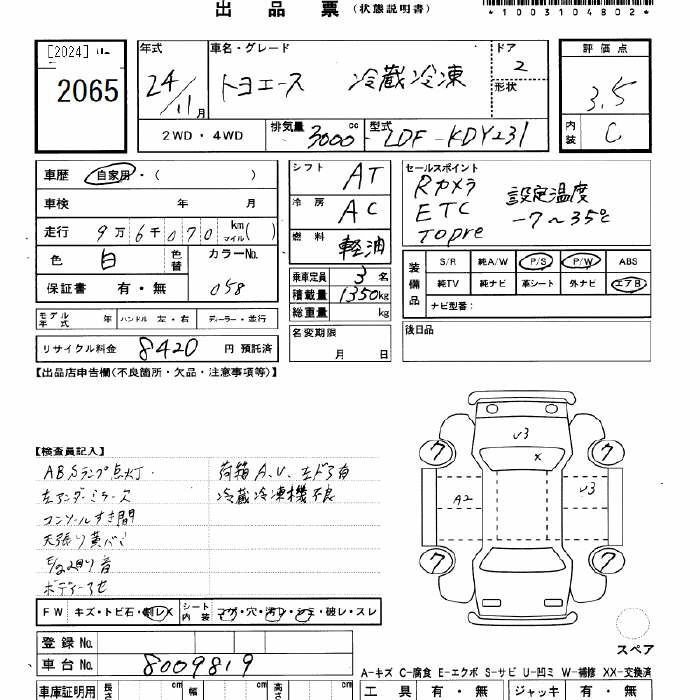 出品票 (状態説明書)
*1003104802*
[2024]
2065
年式
24/11月
車名・グレード
トヨエース 冷蔵冷凍
ドア
2
形状
評価点
3.5
内装
C
2WD・4WD
排気量 3000 cc
型式 LDF-KDY231
車歴 自家用・( )
車検 年 月
走行 9万6千070 km マイル( )
色 白 色替
カラーNo. 058
保証書 有・無
モデル年式 年 ハンドル 左・右 ディーラー・並行
リサイクル料金 8420 円預託済
シフト AT
冷房 AC
燃料 軽油
乗車定員 3名
積載量 1350kg
総重量 kg
名変期限
月 日
セールスポイント
Rカメラ
ETC
Topre
設定温度
-7~35℃
装備品
S/R 純A/W P/S P/W ABS
純TV 純ナビ 革シート 外ナビ エアB
ナビ型番:
後日品
【出品店申告欄(不良箇所・欠品・注意事項等)】
【検査員記入】
ABSランプ点灯
左アンダーミラーヌ
コンソールすき間
天張り黄バミ
音
荷箱A.U.左ドア白
冷蔵冷凍機不良
FW キズ・トビ石・割レX
シート内装 コゲ・穴・汚レ・シミ・破レ・スレ
登録No.
車台No. 8009819
車庫証明用 長さ cm 幅 cm 高さ cm
U3
X
7
7
A2
U3
7
7
スペア
A-キズ C-腐食 E-エクボ S-サビ U-凹ミ W-補修 XX-交換済
工具 有・無 ジャッキ 有・無